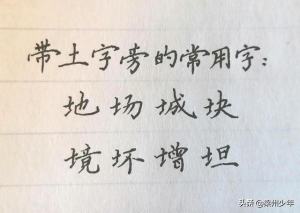 带土字旁的常用字：
地场城块
境坏增坦
头条@泰州少年